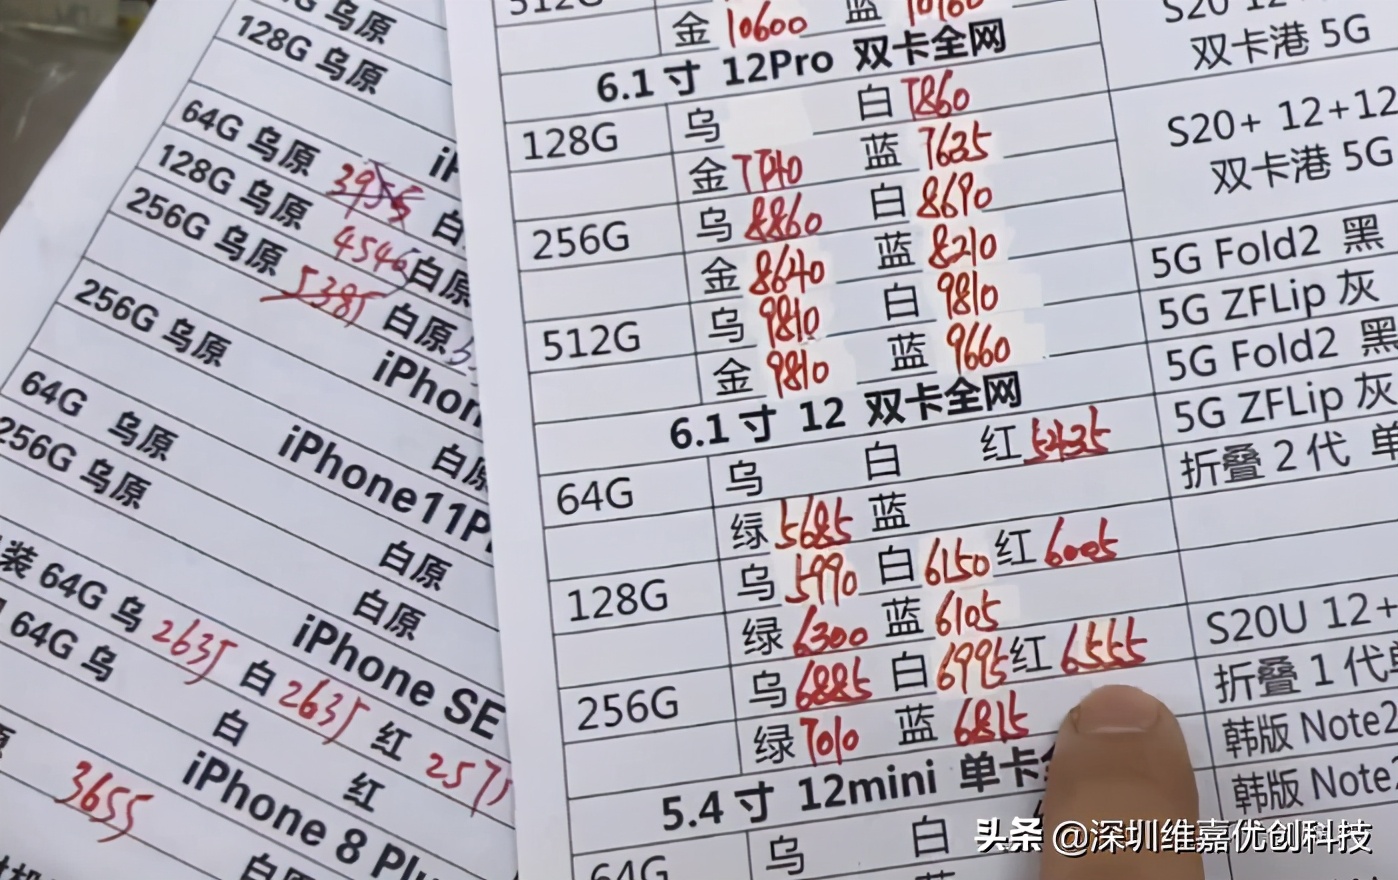 乌原
128G 乌原
64G 乌原 3955 白
128G 乌原 4546 白原
256G 乌原 5385 白原
iPhon
256G 乌原 白原
iPhone11P
64G 乌原 白原
256G 乌原 白原
iPhone SE
装 64G 乌 2635 白 2635 红 257
64G 乌 白 红
iPhone 8 Plu
3655 白原
512G
金 10600 蓝 10160
6.1 寸 12Pro 双卡全网
128G 乌 白 7860
金 蓝 7635
256G 乌 8860 白 8690
金 8640 蓝 8210
512G 乌 9810 白 9810
金 9810 蓝 9660
6.1 寸 12 双卡全网
64G 乌 白 红 5435
绿 5685 蓝
128G 乌 5990 白 6150 红 6005
绿 6300 蓝 6105
256G 乌 6885 白 6995 红 6555
绿 7010 蓝 6815
5.4 寸 12mini 单卡
64G 乌 白
S20 12
双卡港 5G
S20+ 12+12
双卡港 5G
5G Fold2 黑
5G ZFLip 灰
5G Fold2 黑
5G ZFLip 灰
折叠 2 代 单
S20U 12+
折叠 1 代单
韩版 Note2
韩版 Note2
头条 @深圳维嘉优创科技